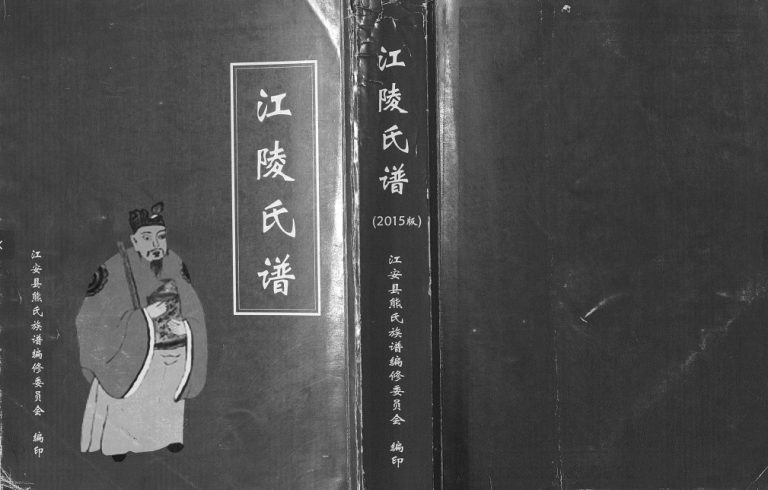 江陵氏谱
江安县熊氏族谱编修委员会 编印
江陵氏谱
(2015版)
江安县熊氏族谱编修委员会 编印